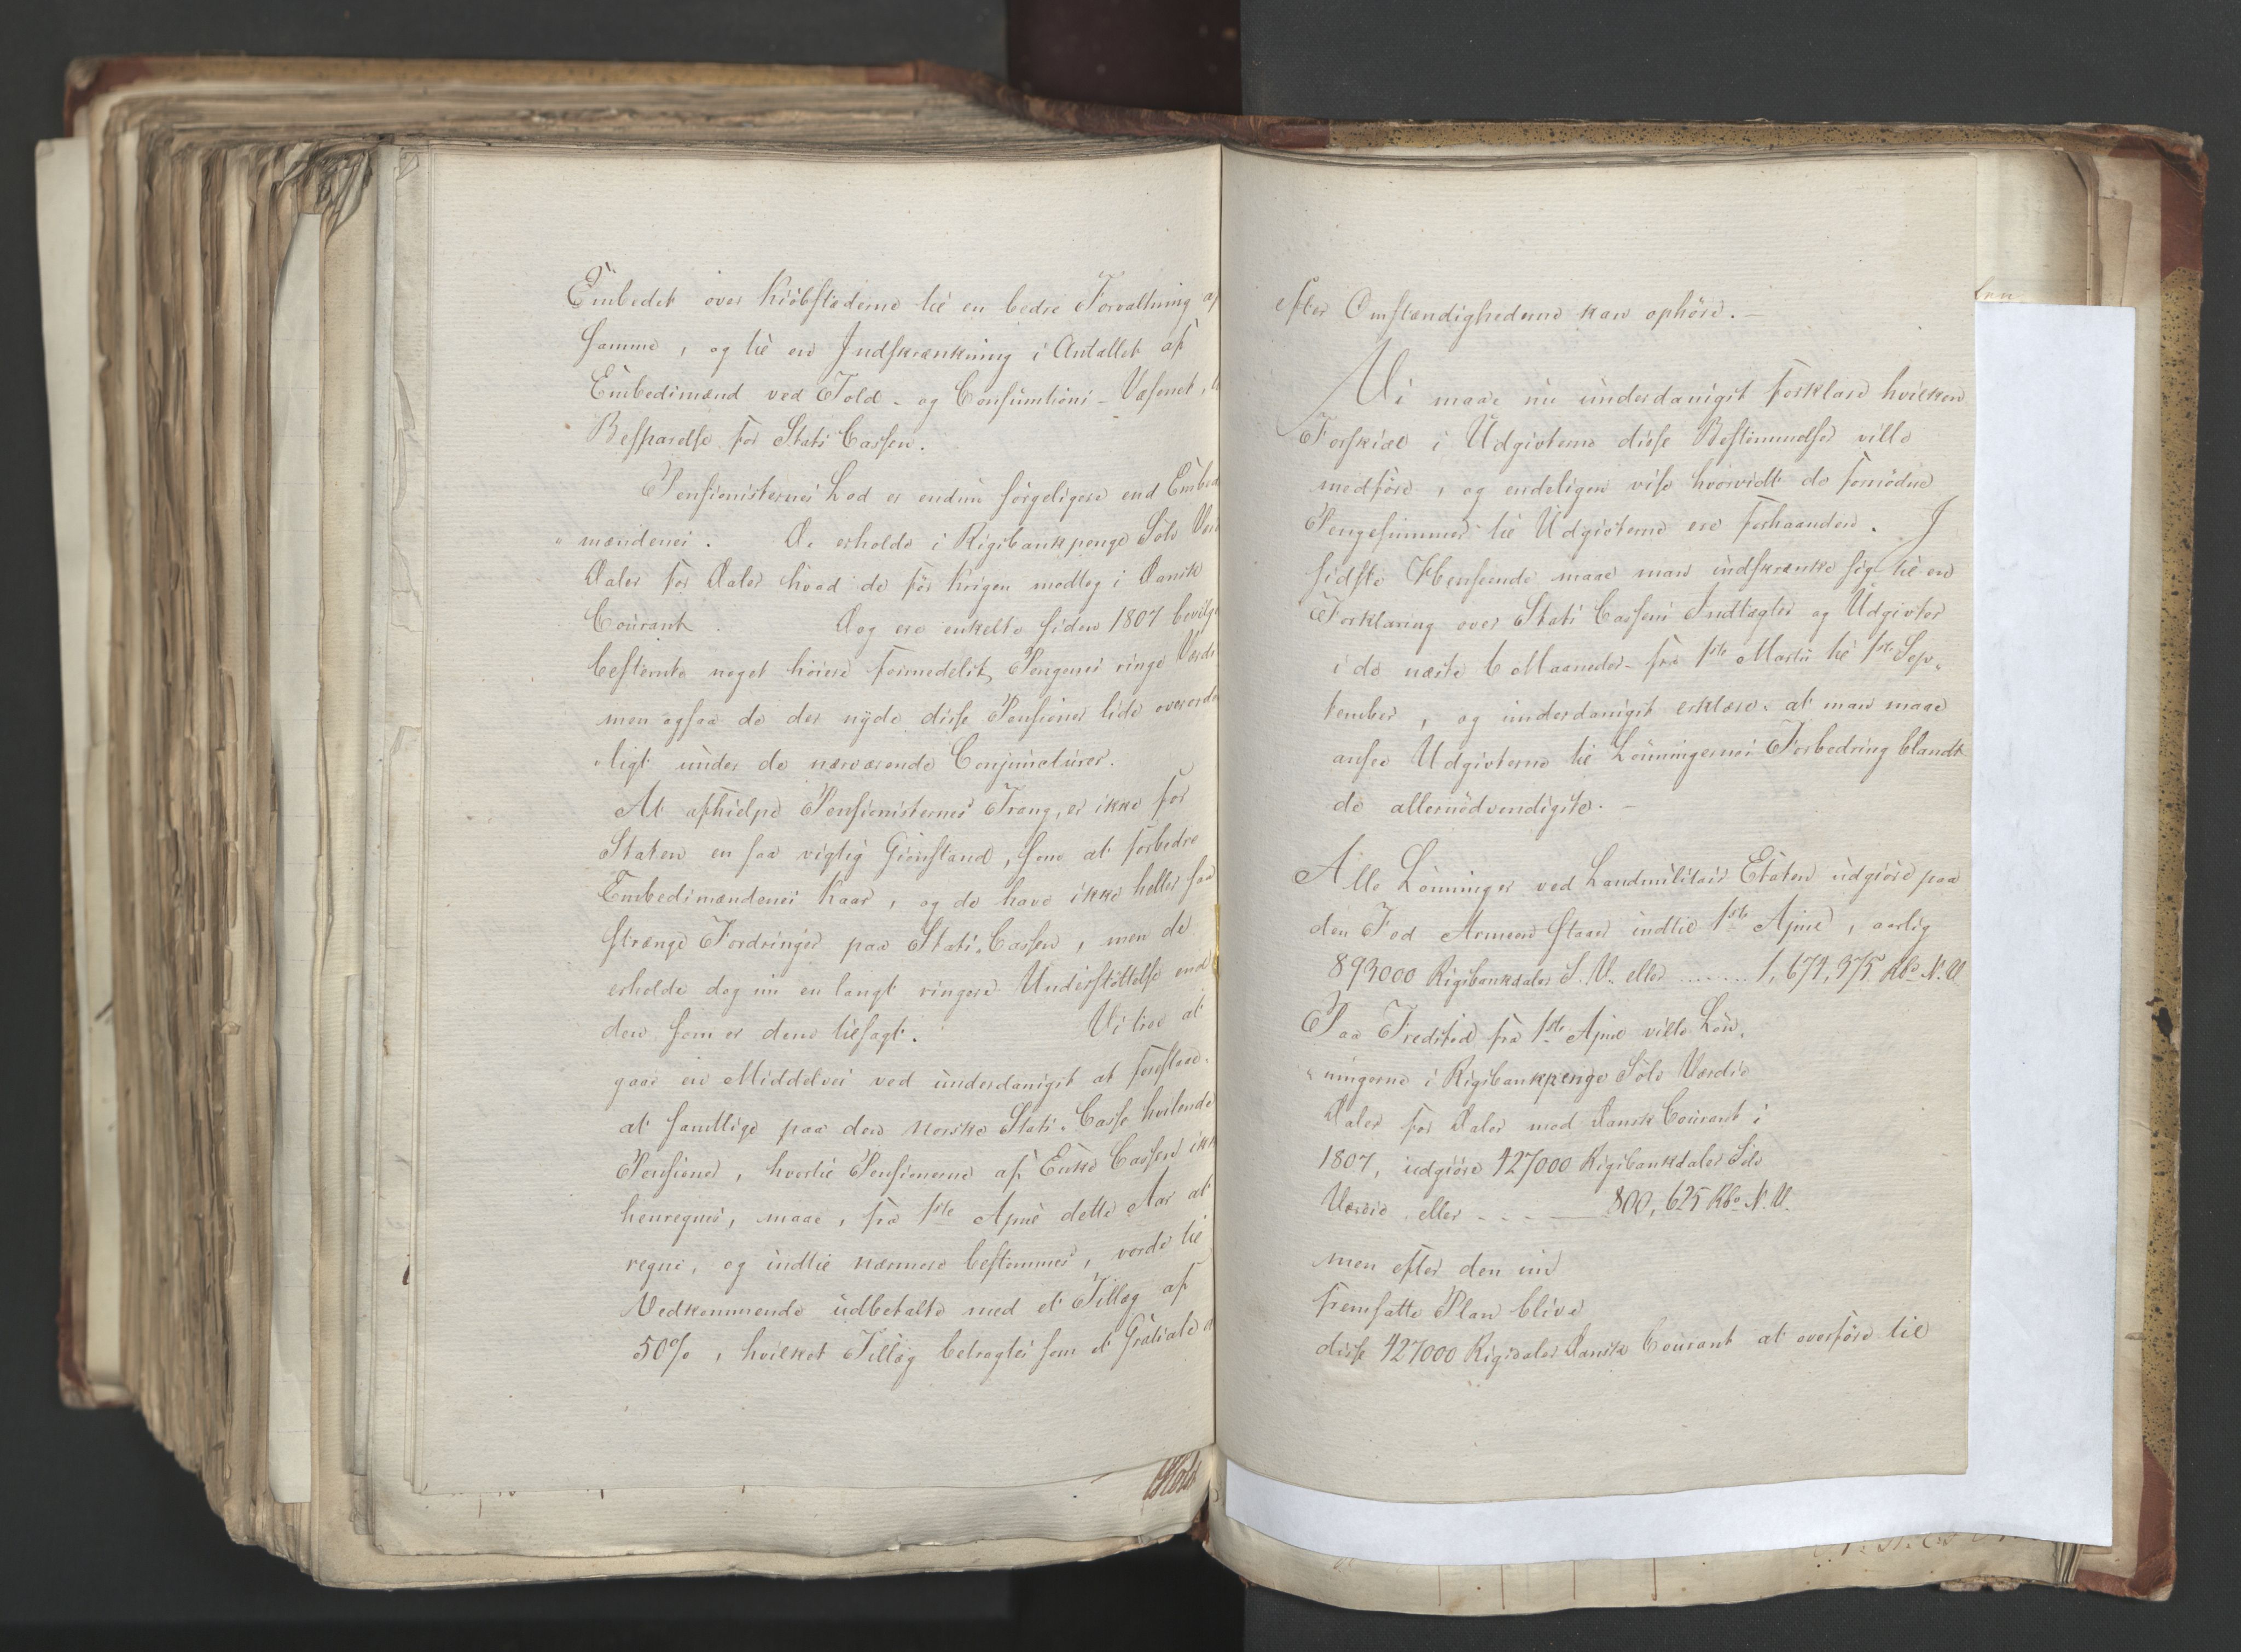 Embedet over Kiöbstæderne til en bedre Forvaltning af
samme, og til en Indskrænkning i Antallet af
Embedsmænd ved Told- og Consumtions-Væsenet,
Besparelse for Stats Cassen.
Pensionisternes Lod er endnu sörgeligere end Embeds
"mændenes. De erholde i Rigsbankpenge Sölv Værd
Daler for Daler hvad de för Krigen modtog i Dansk
Courant. Dog ere enkelte siden 1807 bevilge
bestemte noget höiere formedelst Pengenes ringe Værdi
men ogsaa de der nyde disse Pensioner lide overorde
"ligt under de nærværende Conjuncturer.
At afhielpe Pensionisternes Trang, er ikke for
Staten en saa vigtig Gienstand, som at forbedre
Embedsmændenes Kaar, og de have ikke heller saa
strænge Fordringer paa Stats-Cassen, men de
erholde dog nu en langt ringere Understöttelse end
den som er dem tilsagt. Vi troe at
gaae en Middelvei ved underdanigst at foreslaae:
at samtlige paa den norske Stats-Casse hvilende
Pensioner, hvortil Pensionerne af Enke Cassen ikke
henregnes, maae, fra 1ste April dette Aar at
regne, og indtil nærmere bestemmes, vorde til
Vedkommende udbetalte med et Tillæg af
50%, hvilket Tillæg betragtes som et Gratiale
efter Omstændighederne kan ophöre. –
Vi maae nu underdanigst forklare hvilken
Forskiæl i Udgivterne disse Bestemmelser ville
medföre, og endeligen vise hvorvidt de fornödne
Pengesummer til Udgivterne ere forhaanden. I
sidste Henseende maae man indskrænke sig til en
Forklaring over Stats Cassens Indtægter og Udgivter
i de næste 6 Maaneder fra 1ste Martii til 1ste Sep-
tember, og underdanigst erklære: at man maae
ansee Udgivterne til Lönningernes Forbedring blandt
de allernödvendigste. –
Alle Lönninger ved Landmilitair Etaten udgiöre paa
den Fod Armeen staaer indtil 1ste April, aarlig
893000 Rigsbankdaler S.V. eller ....... 1,674,375 Rbd N.V.
Paa Fredsfod fra 1ste April ville Lön-
"ningerne i Rigsbankpenge Sölv Værdie
Daler for Daler mod Dansk Courant i
1807, udgiöre 427000 Rigsbankdaler Sölv
Værdie eller - - - 800,625 Rbd N.V.
men efter den nu
fremsatte Plan blive
disse 427000 Rigsdaler Dansk Courant at overföre til